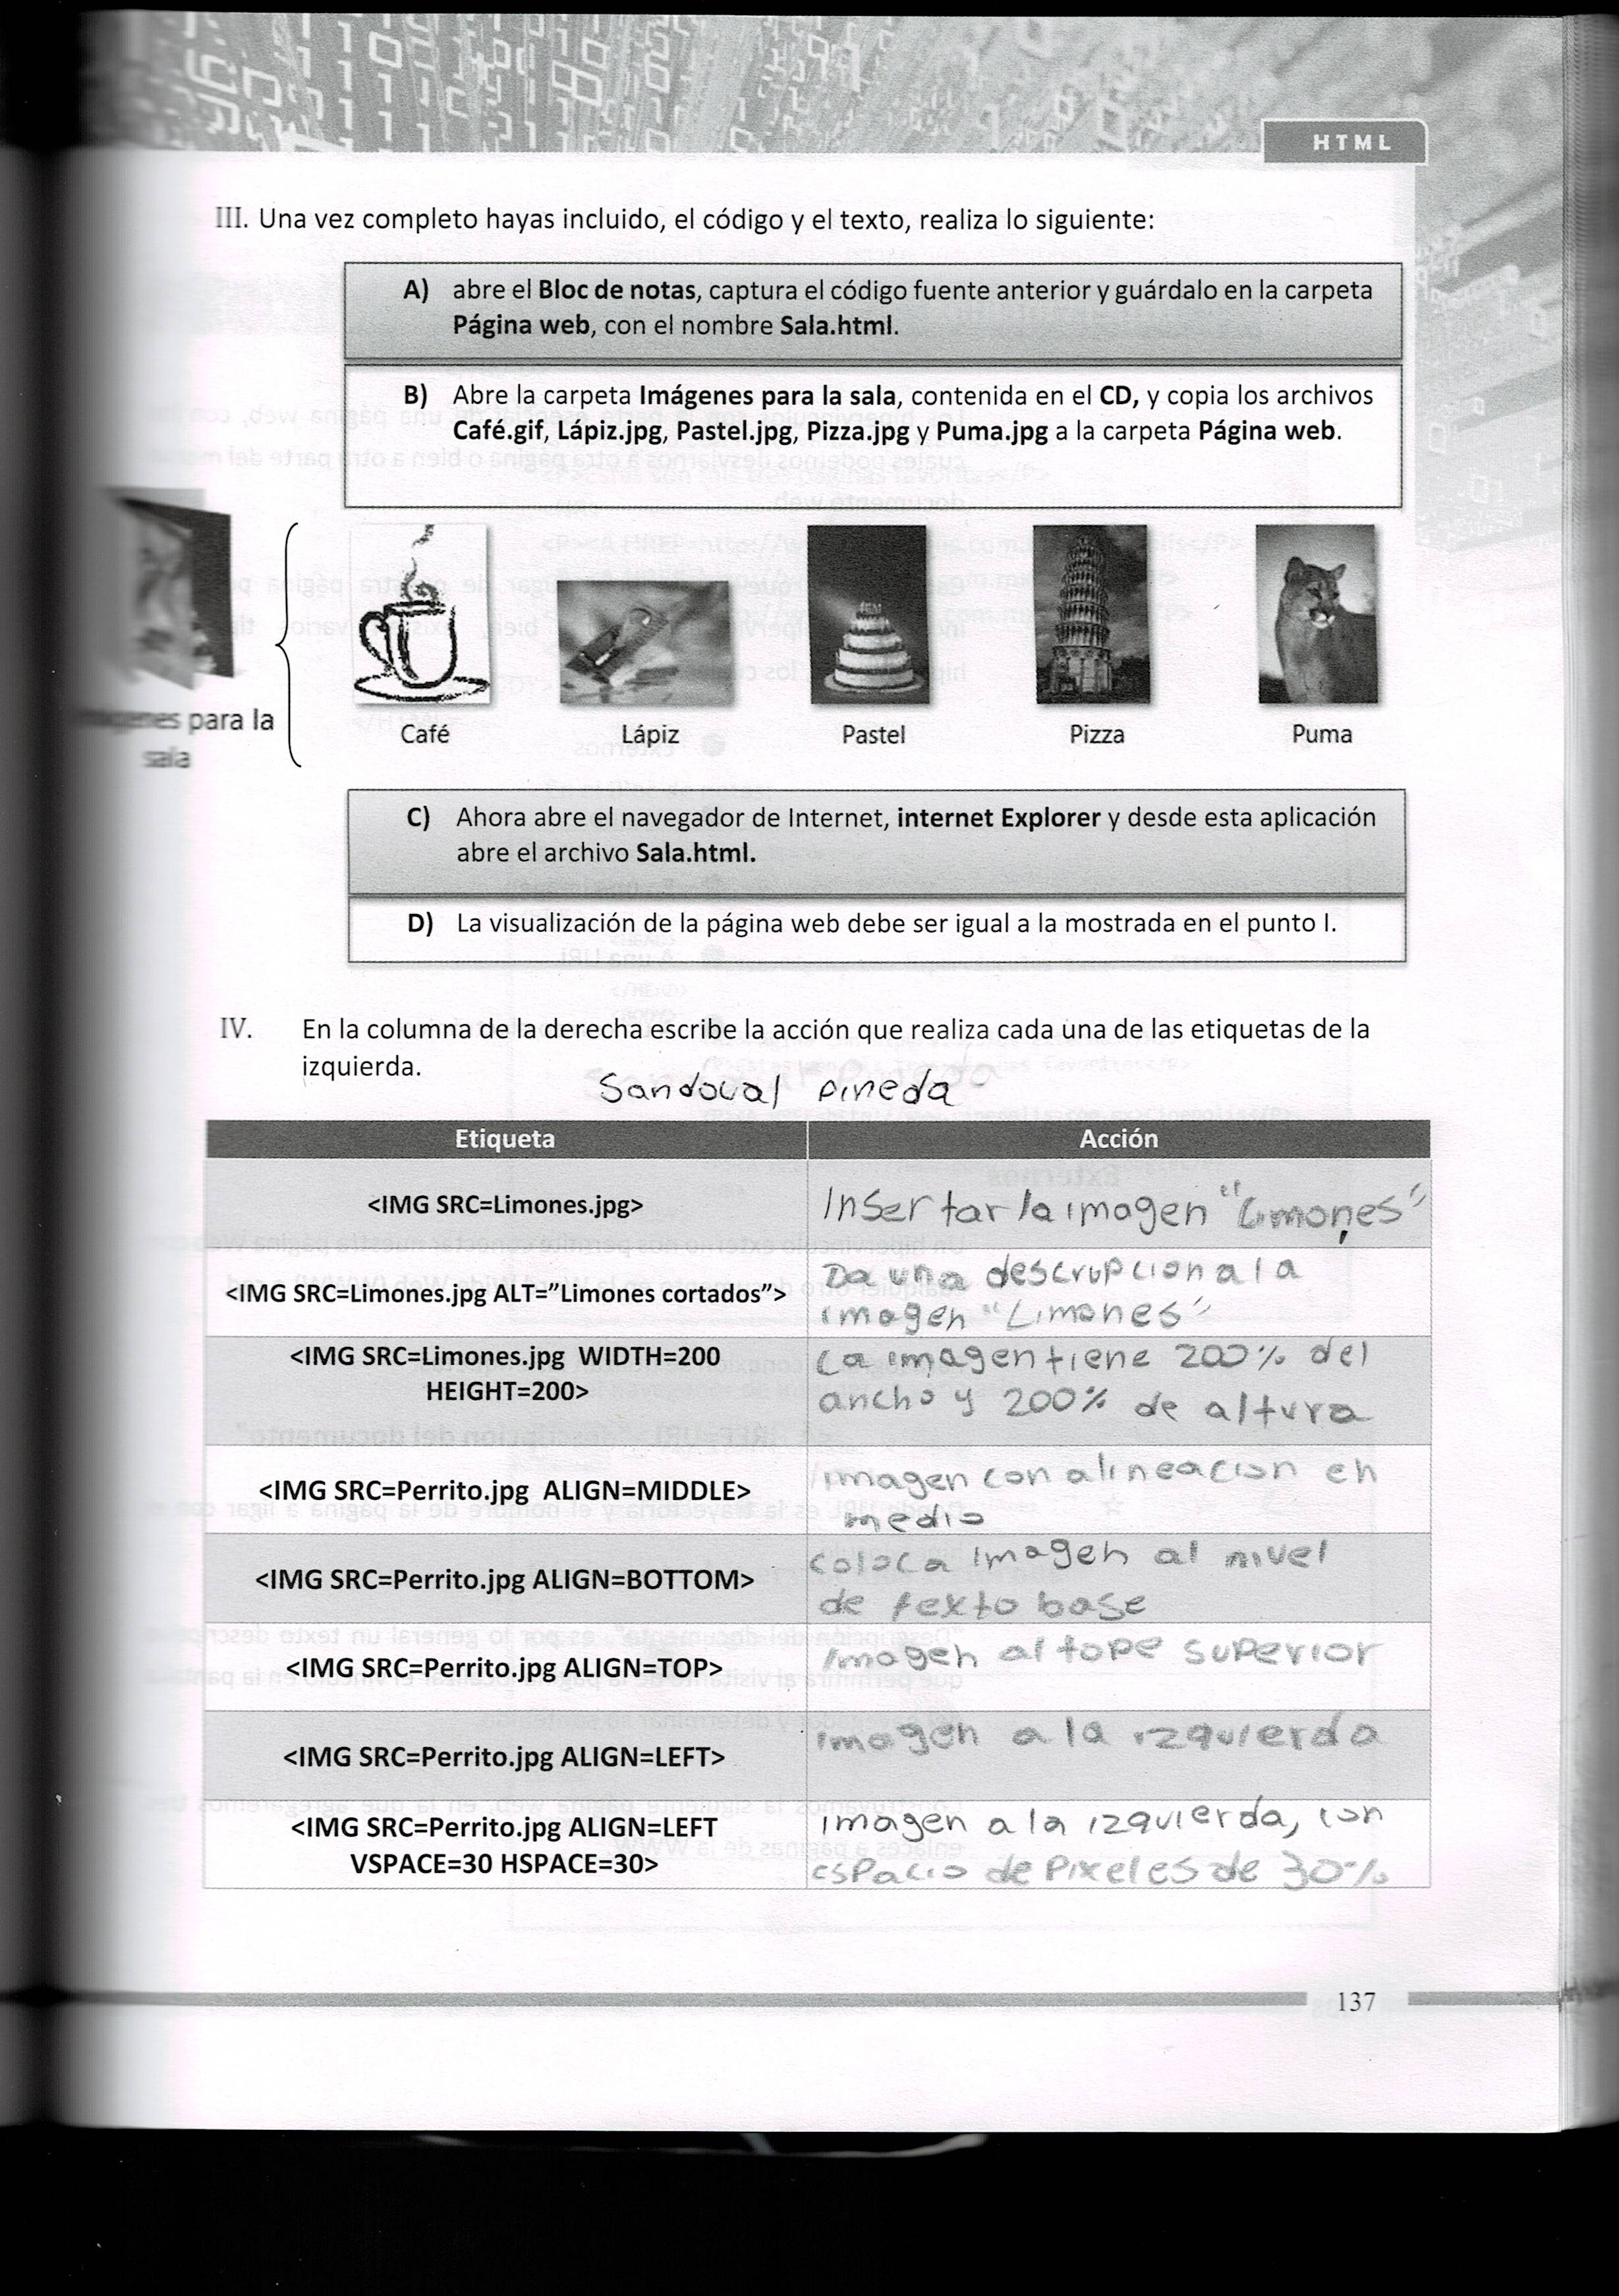 HTML
III. Una vez completo hayas incluido, el código y el texto, realiza lo siguiente:
A) abre el Bloc de notas, captura el código fuente anterior y guárdalo en la carpeta
Página web, con el nombre Sala.html.
B) Abre la carpeta Imágenes para la sala, contenida en el CD, y copia los archivos
Café.gif, Lápiz.jpg, Pastel.jpg, Pizza.jpg y Puma.jpg a la carpeta Página web.
para la
sala
Café Lápiz Pastel Pizza Puma
C) Ahora abre el navegador de Internet, internet Explorer y desde esta aplicación
abre el archivo Sala.html.
D) La visualización de la página web debe ser igual a la mostrada en el punto I.
IV. En la columna de la derecha escribe la acción que realiza cada una de las etiquetas de la
izquierda.
Sandoval Pineda
Etiqueta Acción
<IMG SRC=Limones.jpg> Insertar la imagen "Limones"
<IMG SRC=Limones.jpg ALT="Limones cortados"> Da una descrupcion a la
imagen "Limones"
<IMG SRC=Limones.jpg WIDTH=200 La imagen tiene 200% del
HEIGHT=200> ancho y 200% de altura
<IMG SRC=Perrito.jpg ALIGN=MIDDLE> imagen con alineacion en
medio
<IMG SRC=Perrito.jpg ALIGN=BOTTOM> coloca imagen al nivel
de texto base
<IMG SRC=Perrito.jpg ALIGN=TOP> imagen al tope superior
<IMG SRC=Perrito.jpg ALIGN=LEFT> imagen a la izquierda
<IMG SRC=Perrito.jpg ALIGN=LEFT imagen a la izquierda, con
VSPACE=30 HSPACE=30> espacio de pixeles de 30%
137